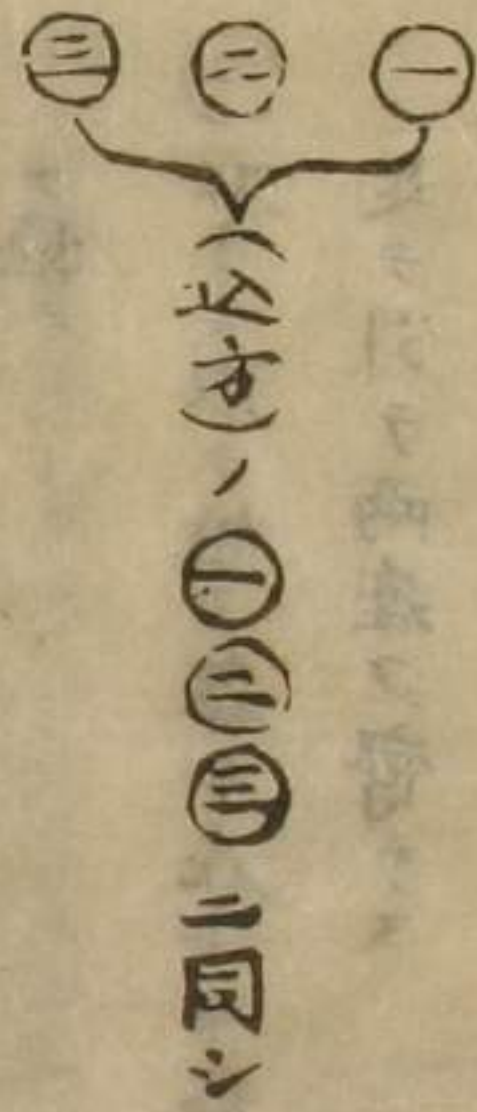 ㊀ ㊁ ㊂
(立方)ノ㊀㊁㊂ニ同シ